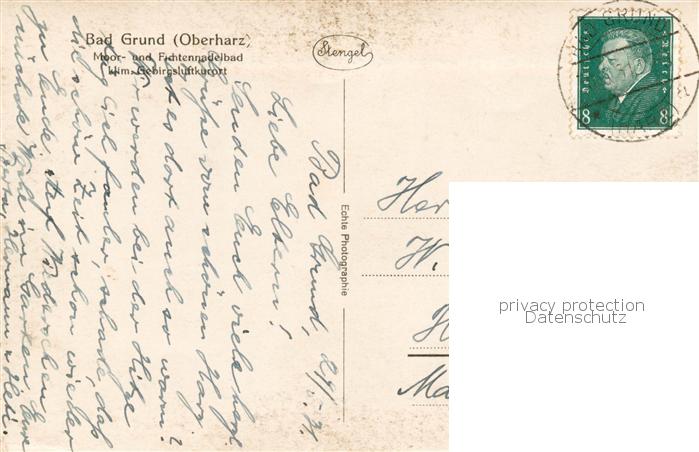 Bad Grund (Oberharz)
Moor- und Fichtennadelbad
Klim. Gebirgsluftkurort
Stengel
Echte Photographie
BAD GRUND
Deutsches Reich
8 8
Bad Grund, 24/5. 31.
Liebe Eltern!
Senden Euch viele herzl.
Grüße vom schönen Harz
Ist es dort auch so warm?
Wir werden bei der Hitze
viel fauler, schade, daß
die schöne Zeit schon wieder
zu Ende. Auf Wiedersehen
nächste Woche im Garten Eure
Hermann u Hedi.
Her
W.
H
Ma
privacy protection
Datenschutz